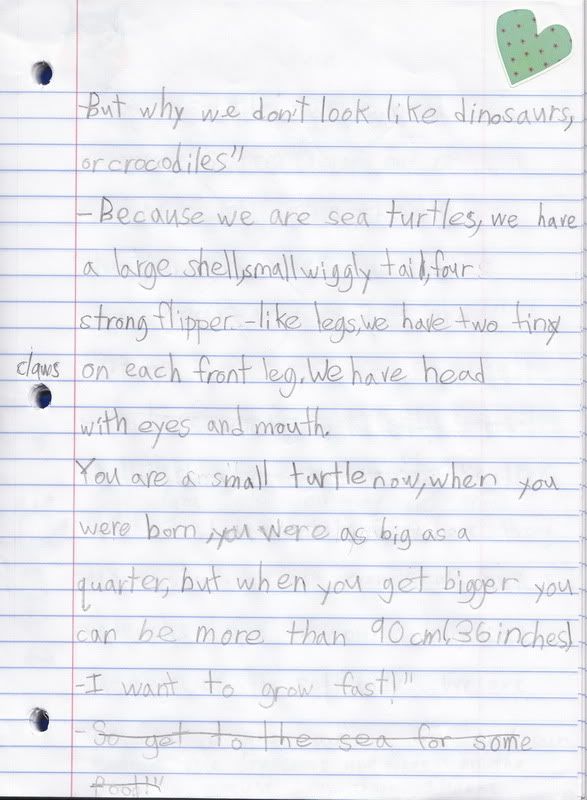 -But why we don't look like dinosaurs,
or crocodiles"
-Because we are sea turtles, we have
a large shell, small wiggly tail, four
strong flipper-like legs, we have two tiny
claws on each front leg. We have head
with eyes and mouth.
You are a small turtle now, when you
were born, you were as big as a
quarter, but when you get bigger you
can be more than 90 cm (36 inches)
-I want to grow fast!"
-So get to the sea for some
food!"